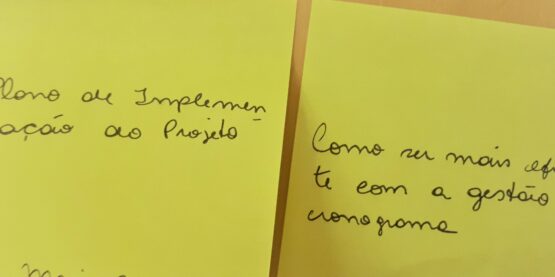 Plano de Implemen-
ação do Projeto
Como ser mais
te com a gestão
cronograma